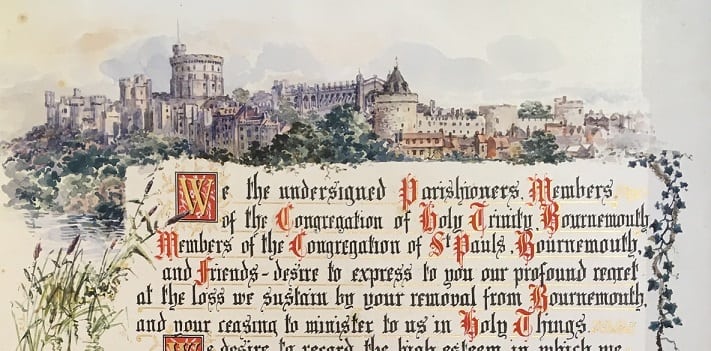 We the undersigned Parishioners, Members
of the Congregation of Holy Trinity, Bournemouth,
Members of the Congregation of St Pauls, Bournemouth,
and Friends - desire to express to you our profound regret
at the loss we sustain by your removal from Bournemouth,
and your ceasing to minister to us in Holy Things.
We desire to record the high esteem in which we